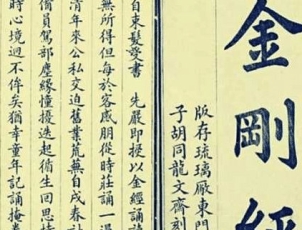 金剛經
版存琉璃厰東門
子胡同龍文齋刻
自束髮受書 先嚴即授以金經誦
無所得但每於客感朋從時莊誦一過
清年來公私交迫舊業荒蕪自戌春
備員駕部塵緣憧擾迭起循生回思
時心境迥不侔矣猶幸童年記誦掩卷